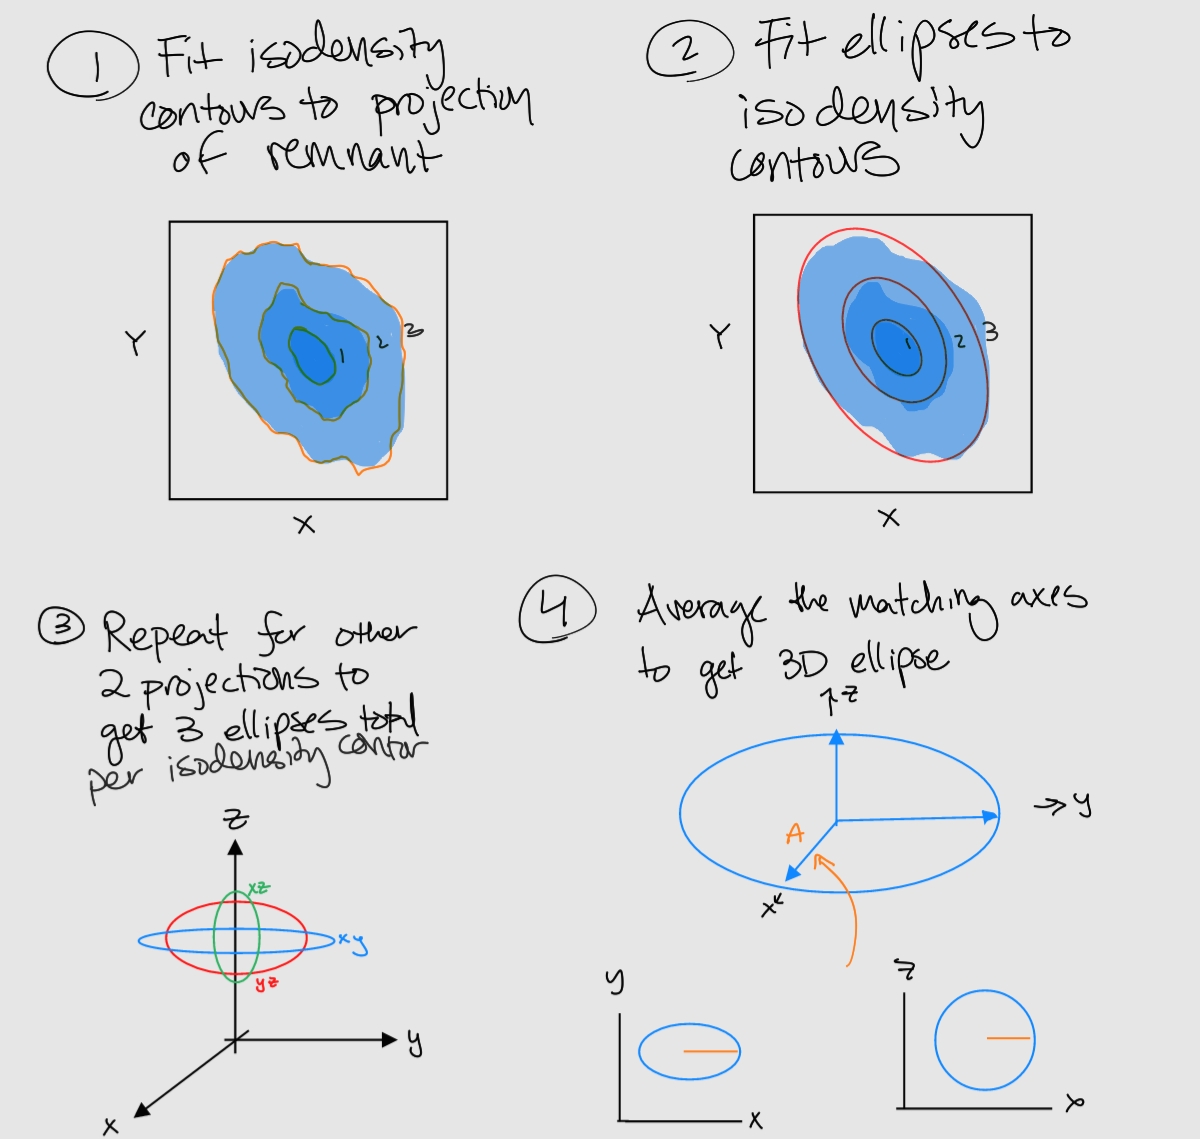 1 Fit isodensity
contours to projection
of remnant
Y
1 2 3
X
2 Fit ellipses to
isodensity
contours
Y
1 2 3
X
3 Repeat for other
2 projections to
get 3 ellipses total
per isodensity contor
z
xz
xy
yz
y
x
4 Average the matching axes
to get 3D ellipse
z
y
A
x
y
x
z
x